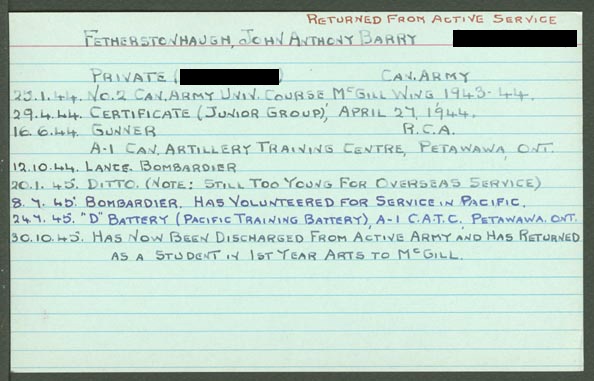 RETURNED FROM ACTIVE SERVICE
FETHERSTONHAUGH, JOHN ANTHONY BARRY
PRIVATE ( ) CAN. ARMY
25.1.44. NO. 2 CAN. ARMY UNIV. COURSE MCGILL WING 1943-44.
29.4.44. CERTIFICATE (JUNIOR GROUP), APRIL 27, 1944.
16.6.44 GUNNER R.C.A.
A-1 CAN. ARTILLERY TRAINING CENTRE, PETAWAWA, ONT.
12.10.44. LANCE BOMBARDIER
20.1.45. DITTO. (NOTE: STILL TOO YOUNG FOR OVERSEAS SERVICE)
8.7.45. BOMBARDIER. HAS VOLUNTEERED FOR SERVICE IN PACIFIC.
24.7.45. "D" BATTERY (PACIFIC TRAINING BATTERY), A-1 C.A.T.C. PETAWAWA. ONT.
30.10.45. HAS NOW BEEN DISCHARGED FROM ACTIVE ARMY AND HAS RETURNED
AS A STUDENT IN 1ST YEAR ARTS TO MCGILL.